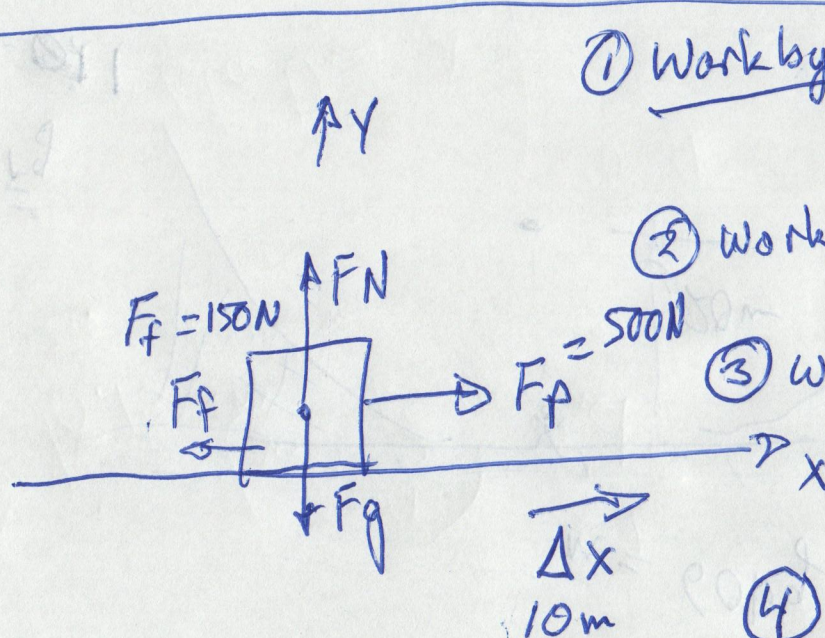 ① Work by
↑ Y
② Work
FN
Ff = 150N
Fp = 500N
③ W
Ff
x
Fg
Δx
10m
④